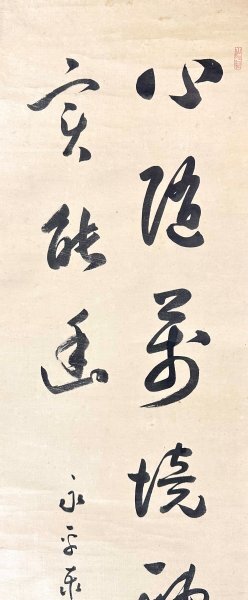 心随萬境転
実能幽
永平泰